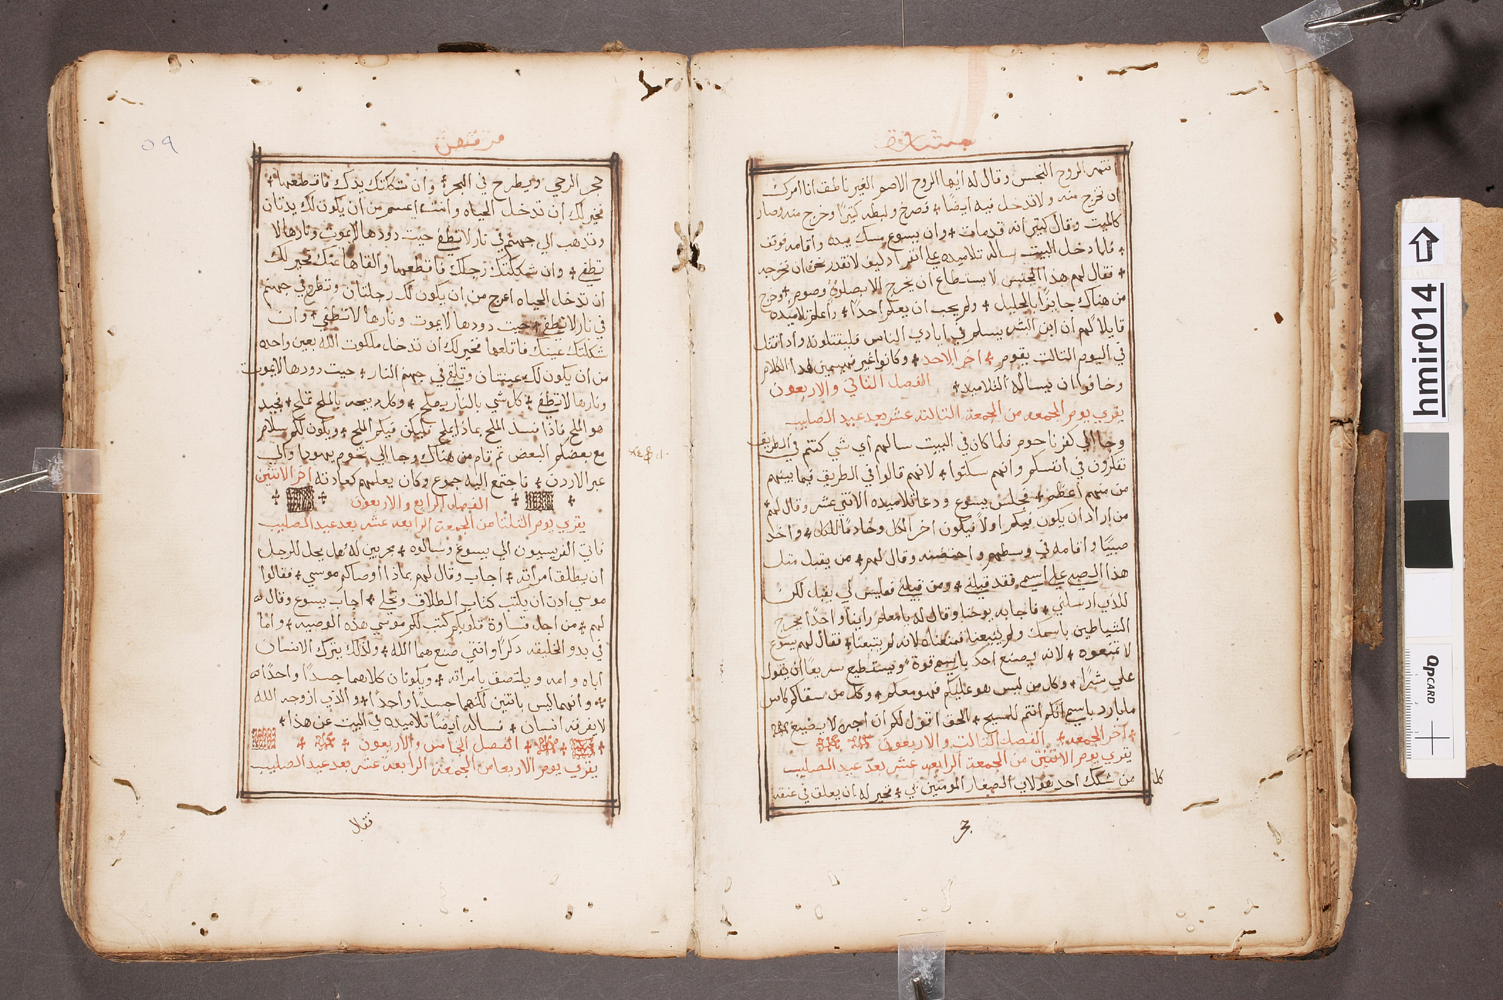 بشارة
نتهر الروح النجس وقال له ايها الروح الاصم الغير ناطق انا امرك
ان تخرج منه ولا تدخل فيه ايضا ÷ فصرخ ولبطه كثيرًا وخرج منه وصار
كالميت وقال كثير انه قد مات ÷ وان يسوع مسك بيده واقامه فوقف
÷ فلما دخل البيت ساله تلاميذه على انفراد كيف لا نقدر نحن ان نخرجه
÷ فقال لهم هذا الجنس لا يستطاع ان يخرج الا بصلوة وصوم ÷ وخرج
من هناك جايزًا بالجليل ÷ ولم يحب ان يعلم احدًا ÷ واعلم تلاميذه
قايلا لهم ان ابن البشر يسلم في ايادي الناس فيقتلونه واذا قتل
في اليوم التالت يقوم ÷ اخر الاحد ÷ وكانوا غير فهيمين هذا الكلام
وخافوا ان يسالة التلاميذ ÷ الفصل التاني والاربعون
يقري يوم الجمعه من الجمعة التالتة عشر بعد عيد الصليب
وجا الي كفرناحوم فلما كان في البيت سالهم اي شي كنتم في الطريق
تفكرون في انفسكم وانهم سكتوا ÷ لانهم قالوا في الطريق فيما بينهم
من منهم اعظم ÷ فجلس يسوع ودعا تلاميذه الاتني عشر وقال لهم
من اراد ان يكون فيكم اولا فيكون اخر الكل وخادمًا للكل ÷ واخذ
صبيًا واقامه في وسطهم واحتضنه وقال لهم ÷ من يقبل متل
هذا الصبي علي اسمي فقد قبلني ÷ ومن قبلني فليس لي يقبل لكن
للذي ارسلني ÷ فاجابه يوحنا وقال له يا معلم راينا واحدًا يخرج
الشياطين باسمك ولم يتبعنا فمنعناه لانه لم يتبعنا ÷ فقال لهم يسوع
لا تمنعوه ÷ لانه ليصنع احد باسمي قوة ويستطيع سريعا ان يقول
علي شرًا ÷ وكل من ليس هو عليكم فهو معكم ÷ وكل من سقاكم كاس
ما بارد باسم انكم انتم للمسيح ÷ الحق اقول لكم ان اجره لا يضيع
÷ اخر الجمعه ÷ الفصل التالت والاربعون
يقري يوم الاتنين من الجمعة الرابعه عشر بعد عيد الصليب
من شكك احد هولاي الصغار المومنين بي ÷ فخير له ان يعلق في عنقه
كل
مرقص
حجر الرحي ويطرح في البحر ÷ وان شككتك يدك فاقطعها ÷
فخير لك ان تدخل الحياه وانت اعسم من ان يكون لك يدتان
وتذهب الي جهنم في نار لا تطفي حيت دودها لا يموت ونارها لا
تطفي ÷ وان شككتك رجلك فاقطعها والقاها عنك فخير لك
ان تدخل الحياه اعرج من ان يكون لك رجلتان وتطرح في جهنم
في نار لا تطفي ÷ حيت دودها لا يموت ونارها لا تطفي ÷ وان
شككتك عينك فاقلعها فخير لك ان تدخل ملكوت الله بعين واحده
من ان يكون لك عينتان وتلقي في جهنم النار ÷ حيت دودها لا يموت
ونارها لا تطفي ÷ كل شي بالنار يملح ÷ وكل دبيحه بالملح تملح ÷ فجيد
هو الملح فاذا فسد الملح بماذا يملح فليكن فيكم الملح ÷ ويكون لكم سلام
مع بعضكم البعض تم قام من هناك وجا الي تخوم يهوديا والي
عبر الاردن ÷ فاجتمع اليه جموع وكان يعلمهم كعادته اخر الاتنين
÷ ÷ الفصل الرابع والاربعون ÷ ÷
يقري يوم التلتا من الجمعة الرابعه عشر بعد عيد الصليب
فاتي الفريسيون الي يسوع وسالوه ÷ مجربين له هل يحل للرجل
ان يطلق امراته ÷ اجاب وقال لهم بماذا اوصاكم موسي ÷ فقالوا
موسي اذن ان يكتب كتاب الطلاق وتخلي ÷ اجاب يسوع وقال له
لهم ÷ من اجل قساوة قلوبكم كتب لكم موسي هذه الوصيه ÷ واما
في بدو الخليقه ذكرًا وانتي صنعهما الله ÷ ولذلك يترك الانسان
اباه وامه ويلتصق بامراته ÷ ويكونان كلاهما جسدًا واحدًا
÷ وانهما ليس باتنين لكنهما جسدًا واحدًا ÷ والذي ازوجه الله
لا يفرقه انسان ÷ فساله ايضا تلاميذه في البيت عن هذا ÷
÷ ÷ الفصل الخامس والاربعون ÷ ÷
يقري يوم الاربعا من الجمعة الرابعة عشر بعد عيد الصليب
فقال